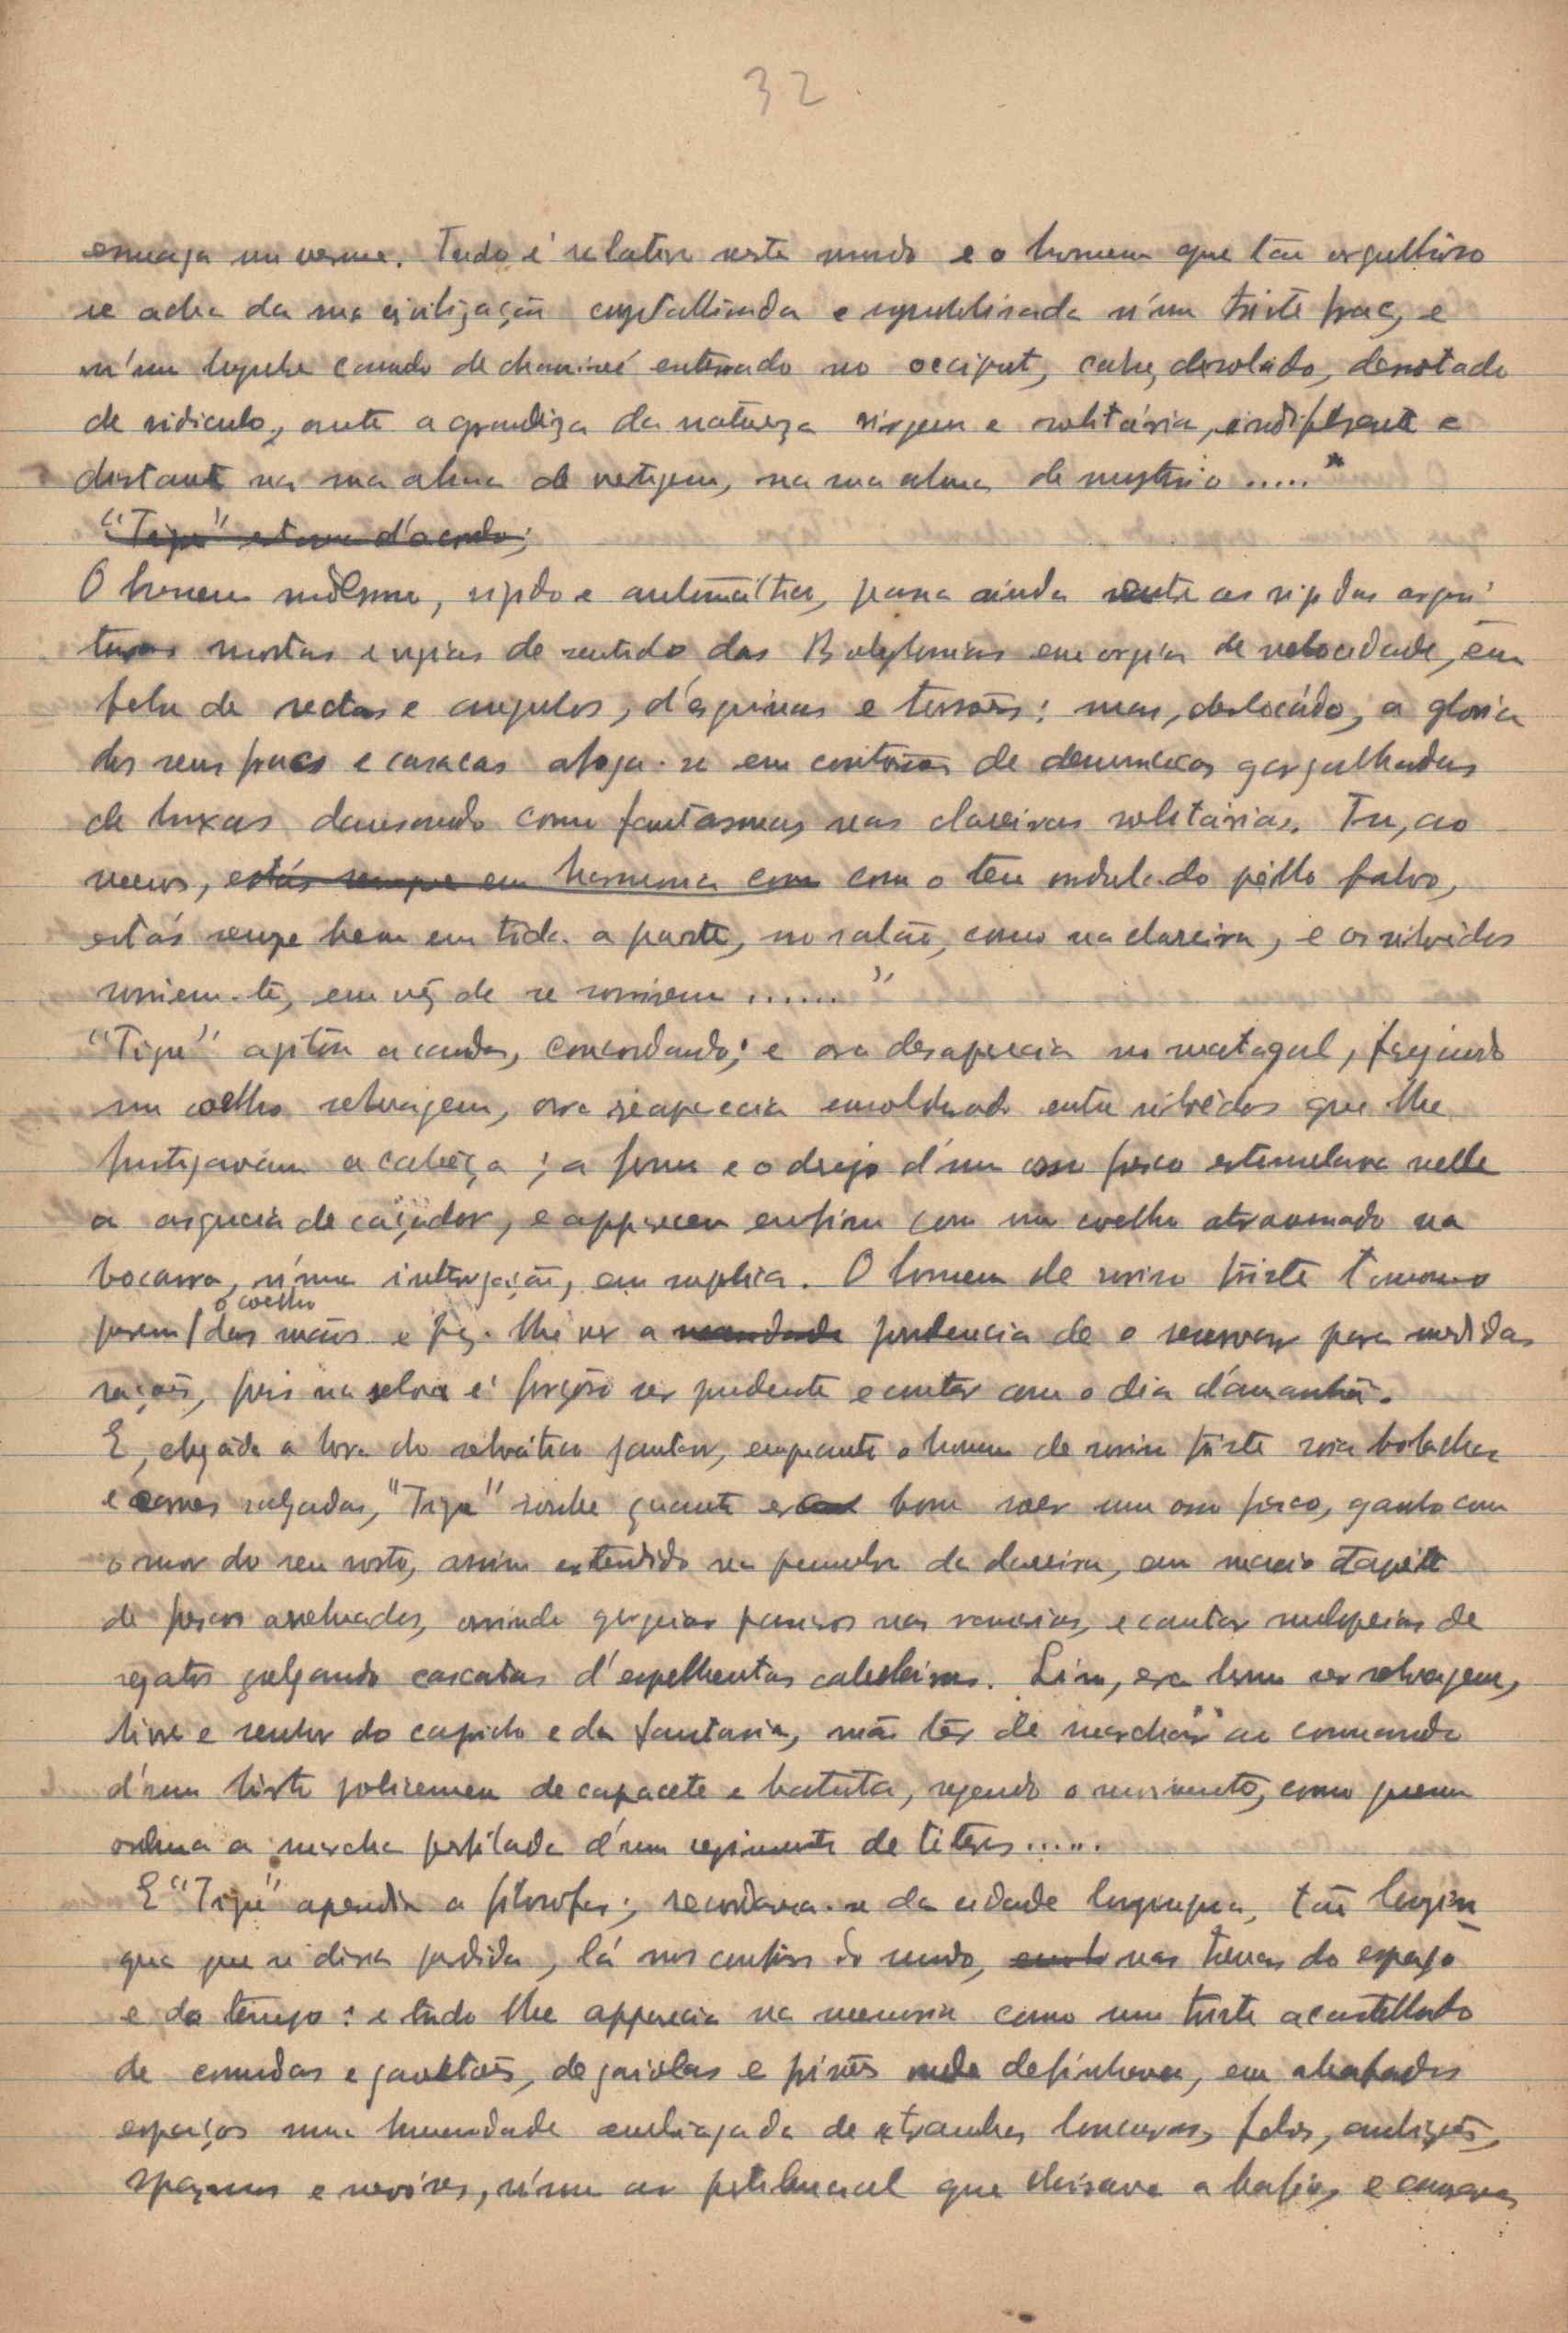 32
esmaga um verme. Tudo é relativo neste mundo e o homem que tão orgulhoso
se acha da sua civilização crystallisada e symbolisada n'um triste frac, e
n'um lugubre canudo de chaminé enterrado no occiput, cahe, desolado, derrotado
de ridiculo, ante a grandeza da natureza virgem e solitária, indifferente e
distante na sua alma de vertigem, na sua alma de mysterio....."
"Tigre" estava d'acordo;
O homem moderno, rigido e automático, passa ainda entre as rigidas
mortas e vazias de sentido das Babylonias em orgia de velocidade, em
febre de rectas e angulos, d'esquinas e torsões: mas, deslocado, a gloria
dos seus fracs e casacas afoga-se em de demoniacas gargalhadas
de bruxas dansando como fantasmas nas clareiras solitárias. Tu, ao
menos, estás sempre em harmonia com com o teu ondulado pêllo fulvo,
estás sempre bem em toda a parte, no salão, como na clareira, e os silvedos
sorriem-te, em vez de se sorrirem ......"
"Tigre" agitou a cauda, concordando; e ora desaparecia no matagal,
um coelho selvagem, ora reaparecia emoldurado entre silvêdos que lhe
fustigavam a cabeça; a fome e o desejo d'um osso fresco estimulava nelle
a argucia de caçador, e appareceu enfim com um coelho atravessado na
bocarra, n'uma interrogação, em suplica. O homem de sorriso triste tomou-o
porem / das mãos e fez-lhe ver a prudencia de o reservar para medidas
o coelho
rações, pois na selva é forçoso ser prudente e contar com o dia d'amanhã.
E, chegada a hora do selvático jantar, emquanto o homem de sorriso triste roia bolachas
e carnes salgadas, "Tigre" soube quanto era bom roer um osso fresco, ganho com
o suor do seu rosto, assim estendido na penumbra da clareira, em macio tapete
de frescos arrelvados, ouvindo gorgear passaros nas ramarias, e cantar melopeias de
regatos galgando cascatas d'espelhentas cabeleiras. Sim, era bom ser selvagem,
livre e senhor do capricho e da fantasia, não ter de marchar ao commando
d'um triste policeman de capacete e batuta, regendo o movimento, como quem
ordena a marcha perfilada d'um regimento de titeres......
E "Tigre" aprendia a filosofar; recordava-se da cidade longinqua, tão longin-
qua que se diria perdida, lá nos confins do mundo, nas trevas do espaço
e do tempo: e tudo lhe apparecia na memoria como um triste acastellado
de comodas e gavetões, de gaiolas e prisões onde definhava, em abafados
espaços uma humanidade embriagada de estranhas loucuras, febres, ambições,
spasmos e nevróses, n'um ar pestilencial que cheirava a bafio, e